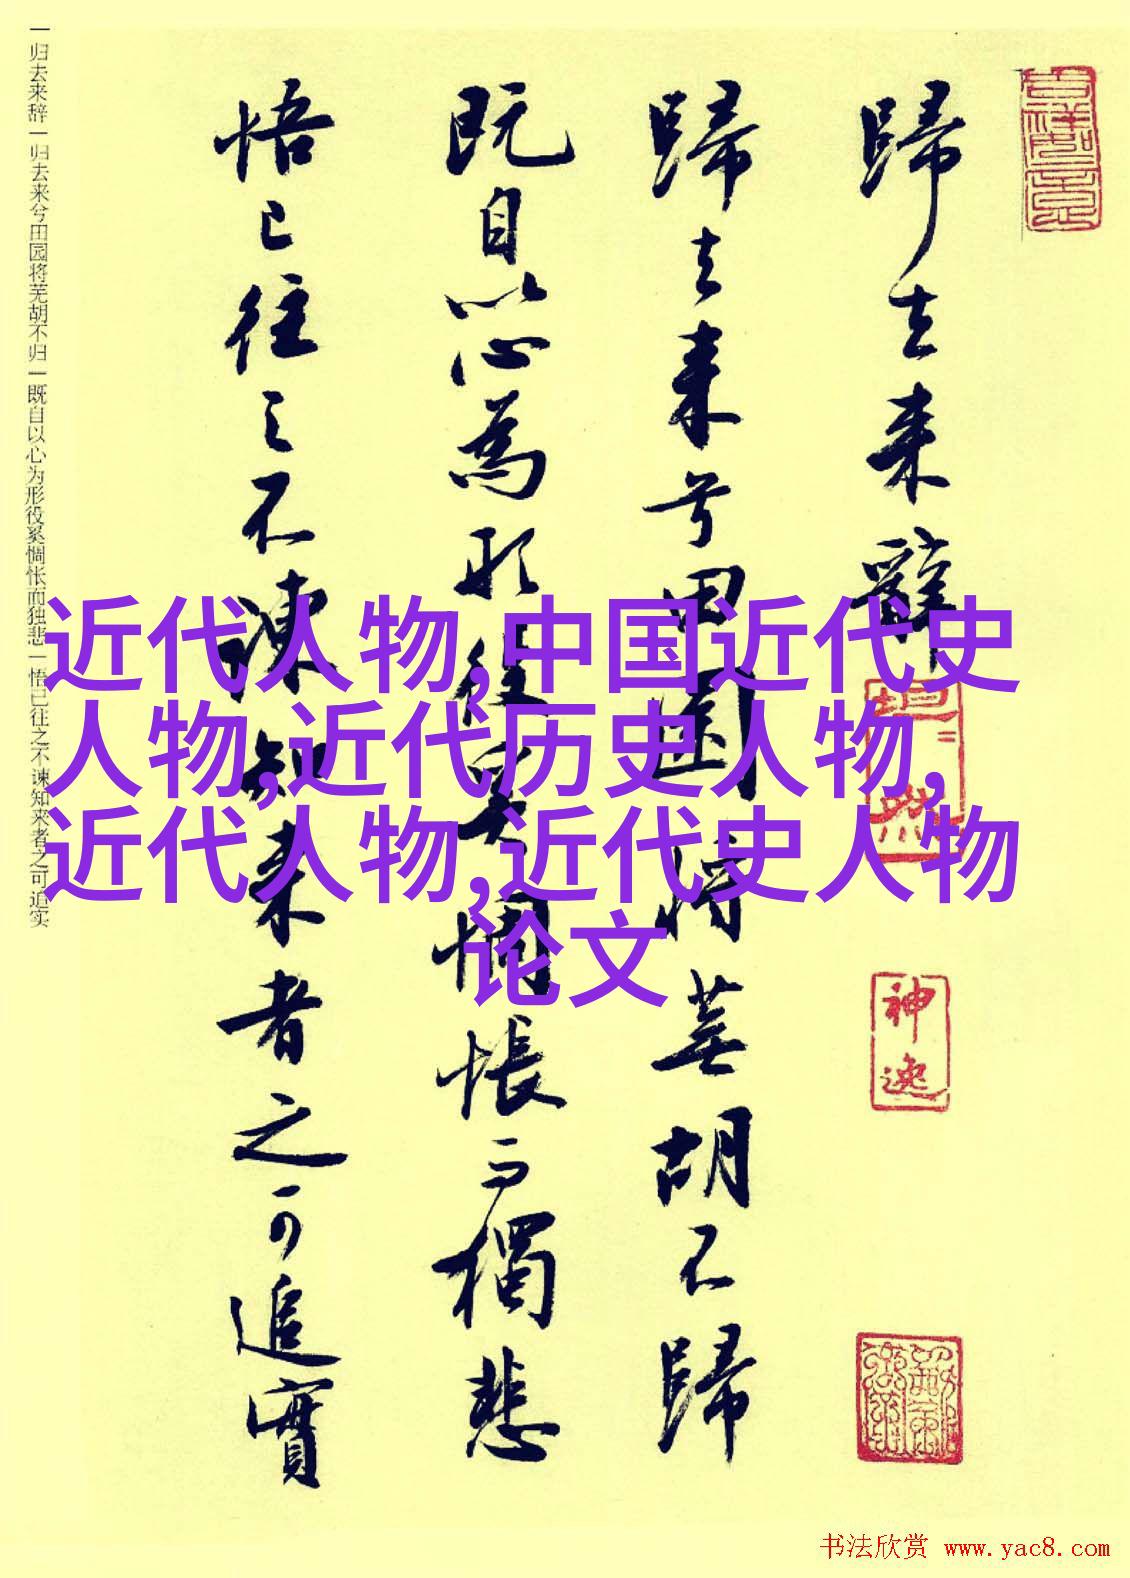 歸去来辭
歸去来兮田園将蕪胡不歸
既自以心為形役奚惆悵而獨悲
悟已往之不諫知来者之可追實
神逸
一归去来辞一归去来兮田园将芜胡不归一既自以心为形役奚惆怅而独悲一悟已往之不谏知来者之可追实
近代人物,中国近代史
人物,近代历史人物,
近代人物,近代史人物
论文
书法欣赏 www.yac8.com